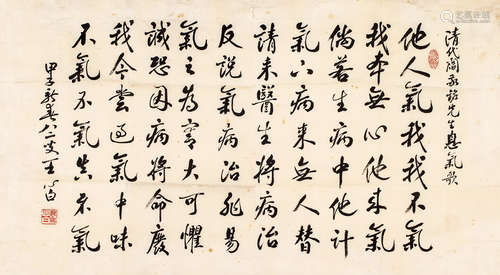 清代阎敬铭先生息氣歌
他人氣我我不氣
我本無心他来氣
倘若生病中他計
氣下病来無人替
請来醫生將病治
反説氣病治非易
氣之為害大可懼
誠恐因病將命廢
我今嘗過氣中味
不氣不氣真不氣
甲子新春八二叟王